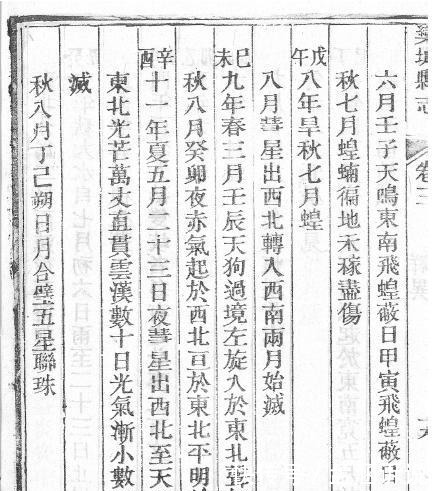 欒城縣志 卷三
六月壬子天鳴東南飛蝗蔽日甲寅飛蝗蔽日
秋七月蝗蝻徧地禾稼盡傷
戊午八年旱秋七月蝗
八月彗星出西北轉入西南兩月始滅
己未九年春三月壬辰天狗過境左旋入於東北聲
秋八月癸卯夜赤氣起於西北亘於東北平明
辛酉十一年夏五月二十三日夜彗星出西北至天
東北光芒萬丈直貫雲漢數十日光氣漸小數
滅
秋八月丁巳朔日月合璧五星聯珠